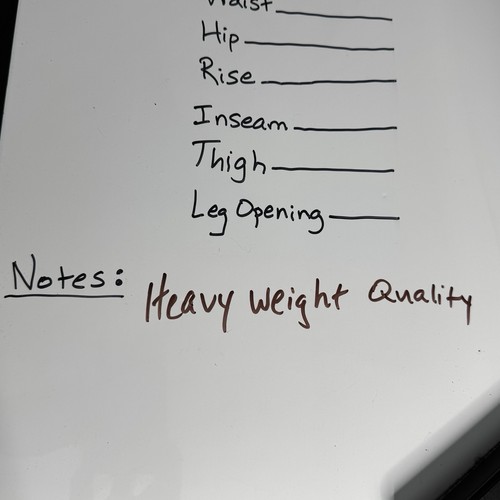 Waist
Hip
Rise
Inseam
Thigh
Leg Opening
Notes: Heavy weight Quality